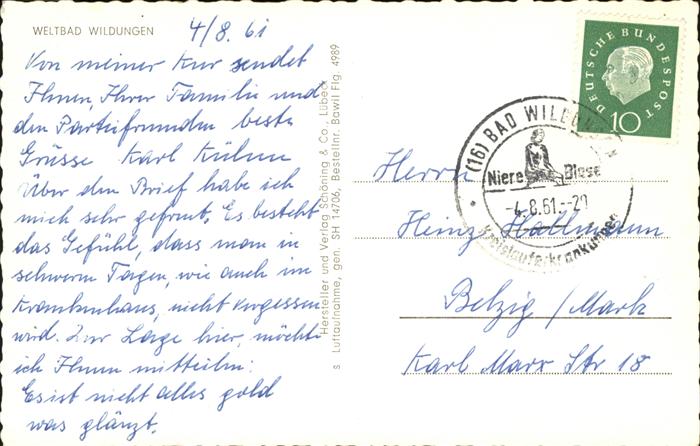 WELTBAD WILDUNGEN
4/8.61
Von meiner Kur sendet
Ihnen, Ihrer Familie und
den Parteifreunden beste
Grüsse Karl Kühne
Über den Brief habe ich
mich sehr gefreut. Es besteht
das Gefühl, dass man in
schweren Tagen, wie auch im
Krankenhaus, nicht vergessen
wird. Zur Lage hier, möchte
ich Ihnen mitteilen:
Es ist nicht alles gold
was glänzt.
Hersteller und Verlag Schöning & Co., Lübeck
s Luftaufnahme, gen. SH 14706, Bestellnr. Bawil Flg. 4989
DEUTSCHE BUNDESPOST
10
(16) BAD WILDUNGEN
Niere Blase
-4.8.61.--20
Kreislauferkrankungen
Herrn
Heinz Hallmann
Belzig / Mark
Karl Marx Str 18